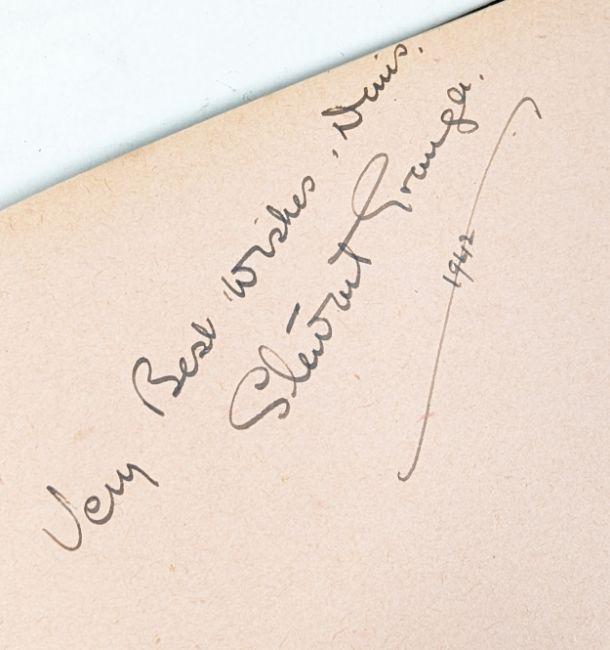 Very Best Wishes, Denis.
Stewart Granger.
1942